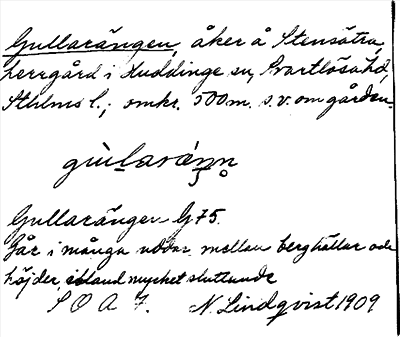 Gullarängen, åker å Stensätra,
herrgård i Huddinge sn, Svartlösa hd,
Sthlms l.; omkr. 500 m. s.v. om gården.
gùlarǽnn
Gullarängen G 75.
Går i många uddar mellan berghällar och
höjder, ibland mycket sluttande
S O A 7. N. Lindqvist 1909